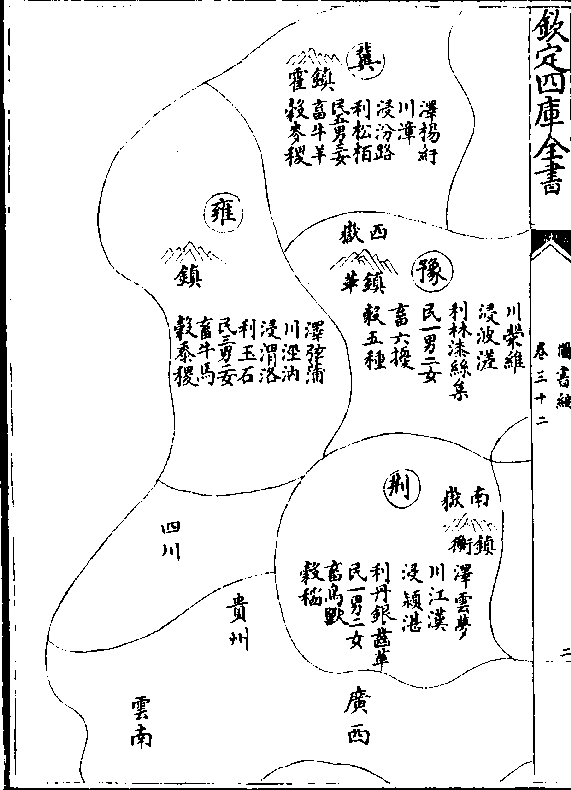 欽定四庫全書
圖書編
卷三十二
二
冀
霍鎮
澤揚紆
川漳
浸汾路
利松栢
民五男三女
畜牛羊
穀麥稷
雍
鎮
澤弦蒲
川涇汭
浸渭洛
利玉石
民三男二女
畜牛馬
穀黍稷
西嶽
華鎮
豫
川滎維
浸波溠
利林漆絲枲
民一男二女
畜六擾
穀五種
荆
南嶽
衡鎮
澤雲夢
川江漢
浸潁湛
利丹銀齒革
民一男二女
畜鳥獸
穀稻
四川
貴州
雲南
廣西